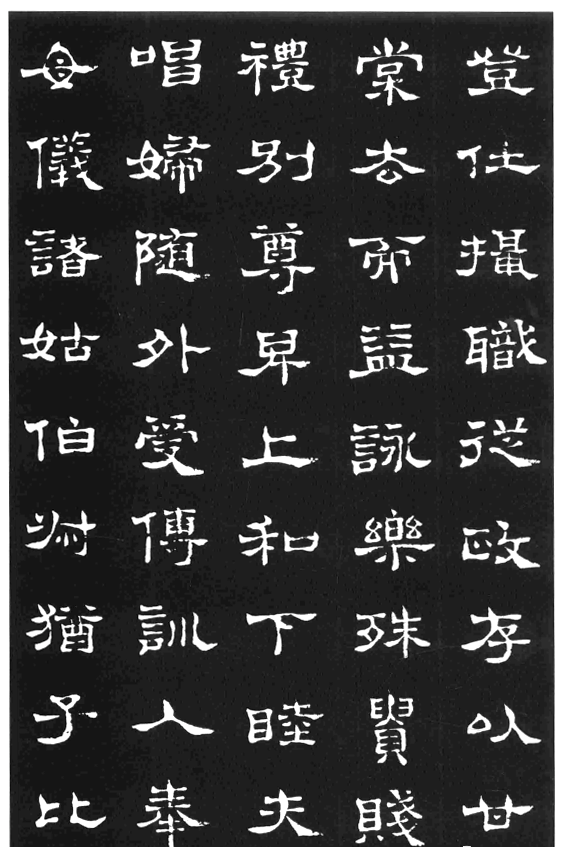 登仕攝職從政存以甘
棠去而益詠樂殊貴賤
禮別尊卑上和下睦夫
唱婦隨外受傅訓入奉
母儀諸姑伯叔猶子比